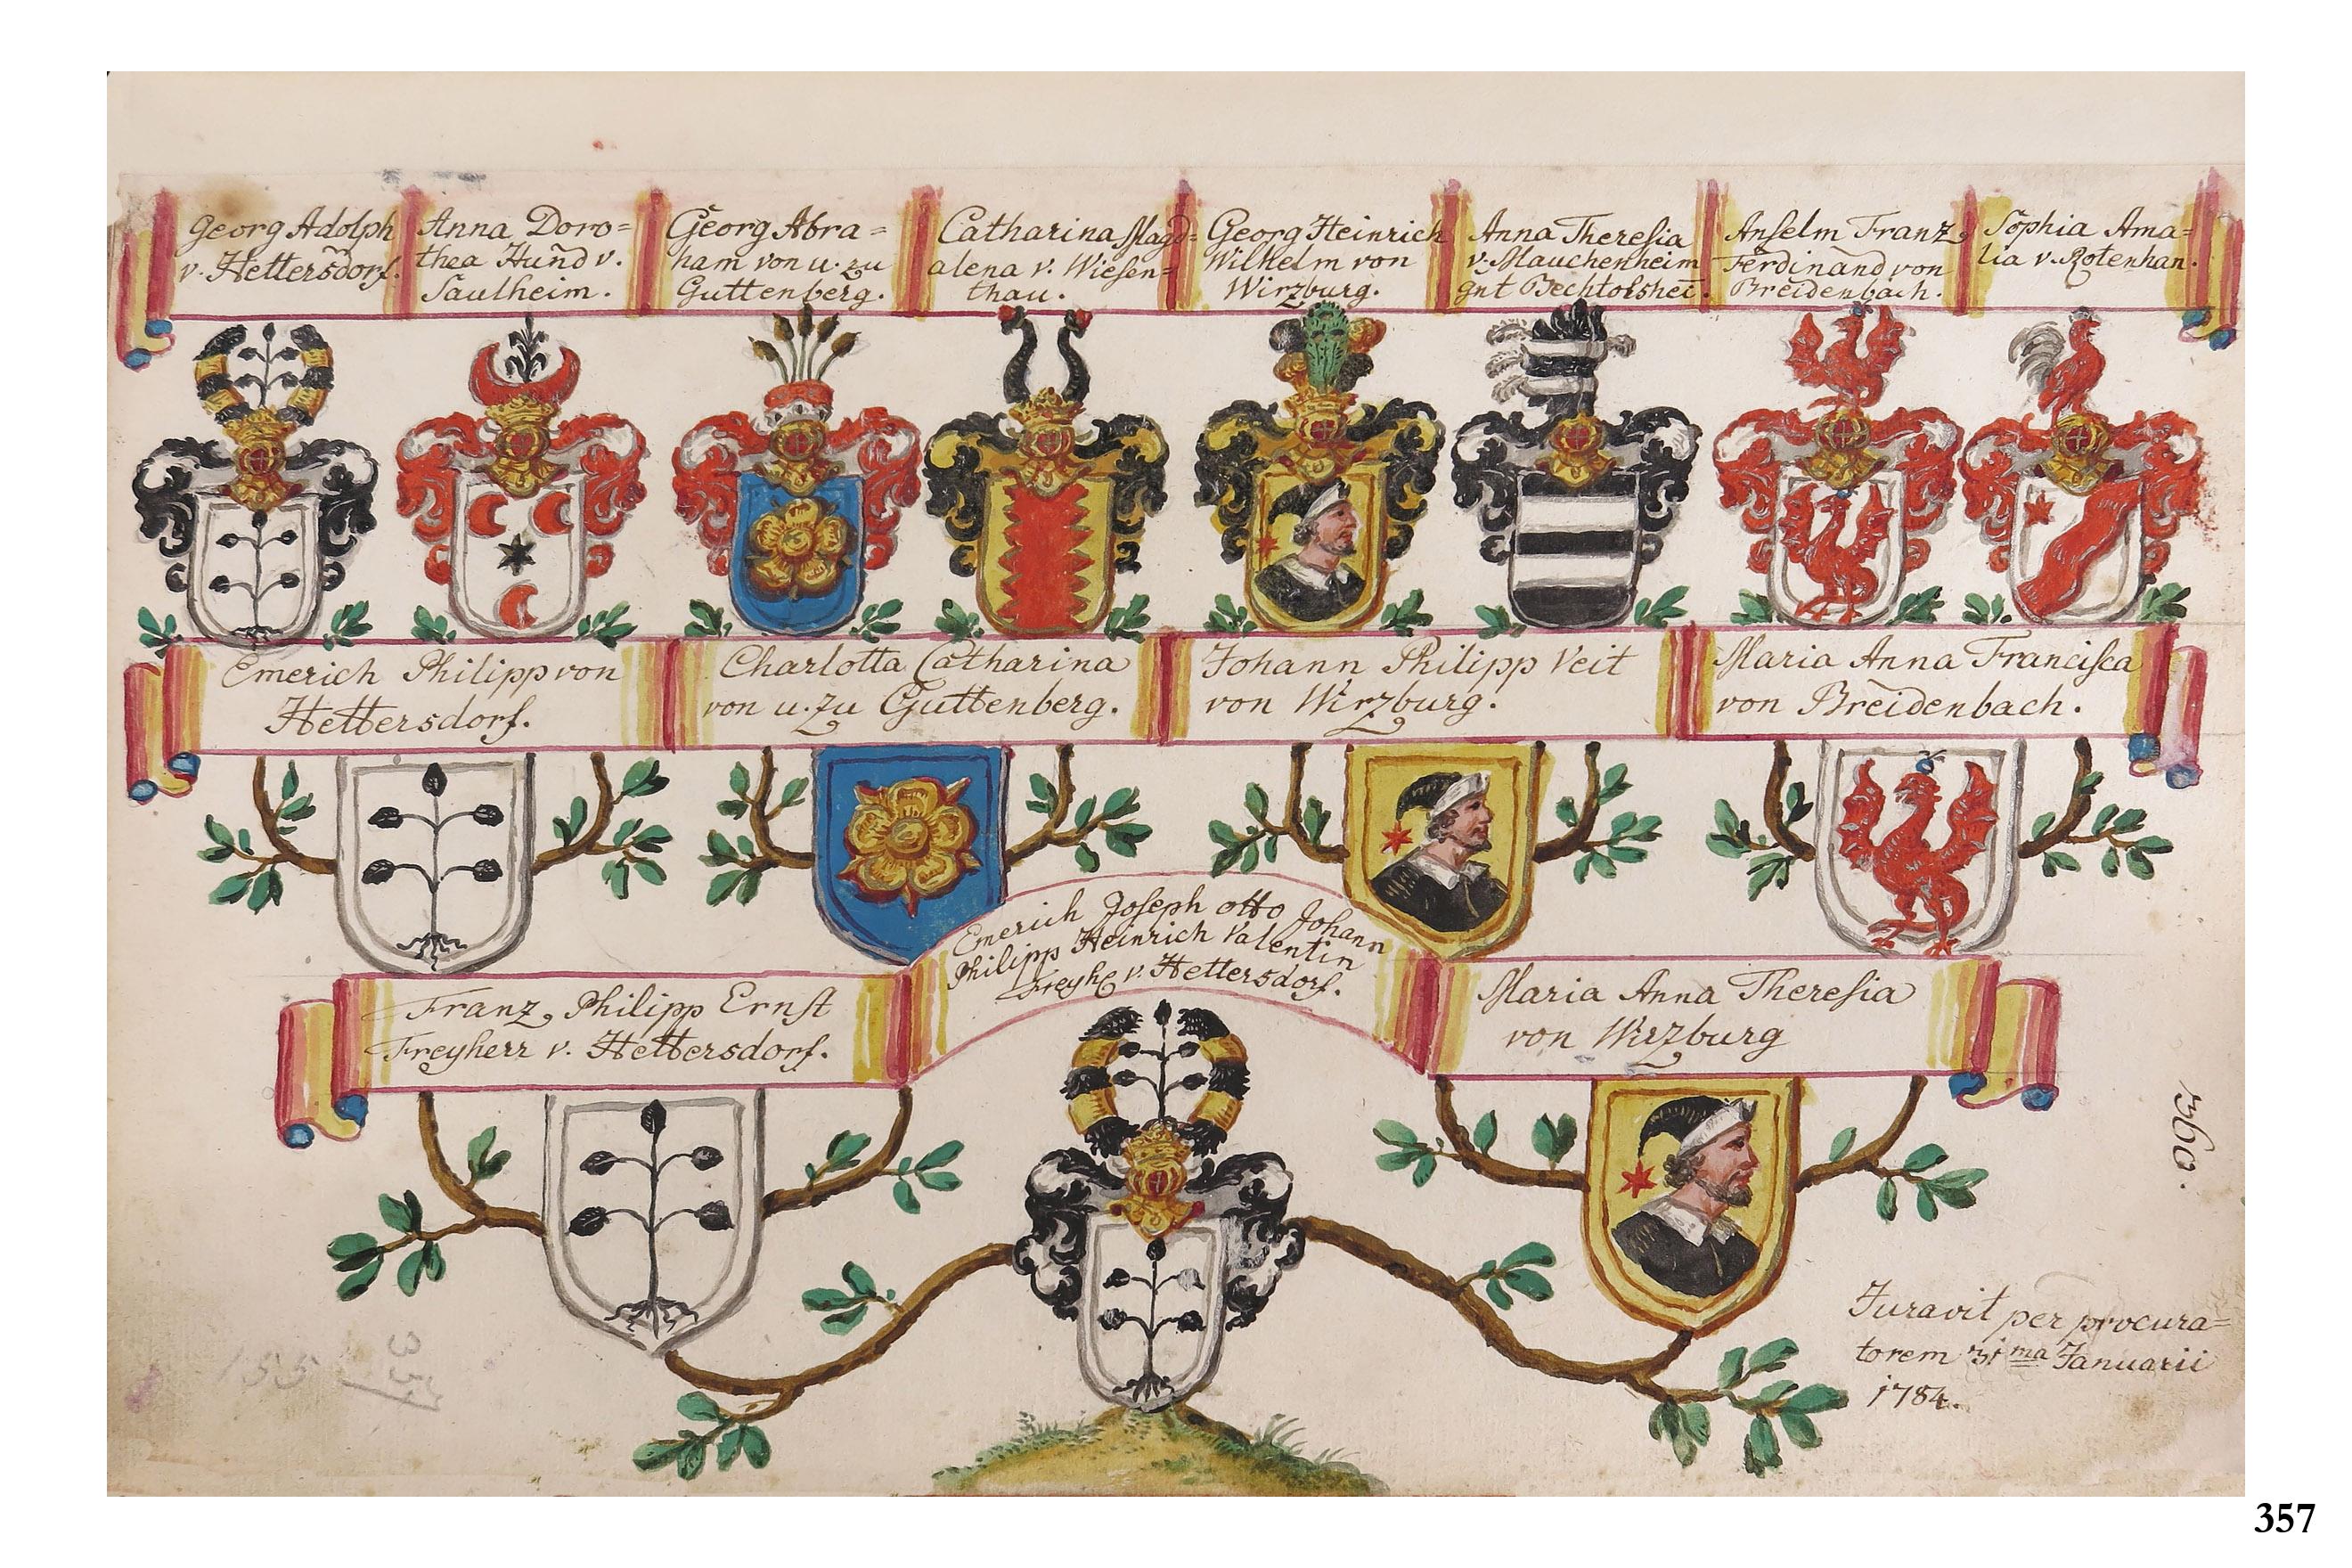 Georg Adolph
v. Hettersdorf.
Anna Doro=
thea Hund v.
Saulheim.
Georg Abra=
ham von u. zu
Guttenberg.
Catharina Magd=
alena v. Wiesen=
thau.
Georg Heinrich
Wilhelm von
Wirzburg.
Anna Theresia
v. Mauchenheim
gnt Bechtolsheī.
Anselm Franz
Ferdinand von
Breidenbach.
Sophia Ama=
lia v. Rotenhan.
Emerich Philipp von
Hettersdorf.
Charlotta Catharina
von u. zu Guttenberg.
Johann Philipp Veit
von Wirzburg.
Maria Anna Francisca
von Breidenbach.
Franz Philipp Ernst
Freyherr v. Hettersdorf.
Emerich Joseph otto Johann
Philipp Heinrich Valentin
Freyh v. Hettersdorf.
Maria Anna Theresia
von Wirzburg
360.
Juravit per procura=
torem 31ma Januarii
1784.
155
357